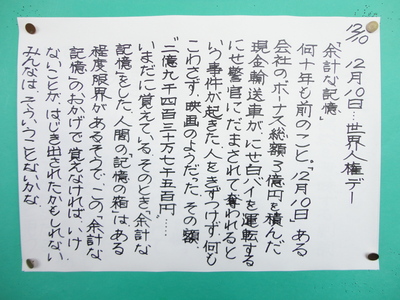 12/10
12月10日…世界人権デー
「余計な記憶」
何十年も前のこと。「12月10日」ある
会社のボーナス総額3億円を積んだ
現金輸送車が、にせ白バイを運転する
にせ警官にだまされて奪われると
いう事件が起きた。人をきずつけず、何も
こわさず、映画のようだった。その額
"二億九千四百三十万七千五百円"……
いまだに覚えている。そのとき「余計な
記憶」をした。人間の「記憶の箱」はある
程度限界があるそうで、この「余計な
記憶」のおかげで覚えなければいけ
ないことが、はじき出されたかもしれない。
みんなは、そういうことないかな。